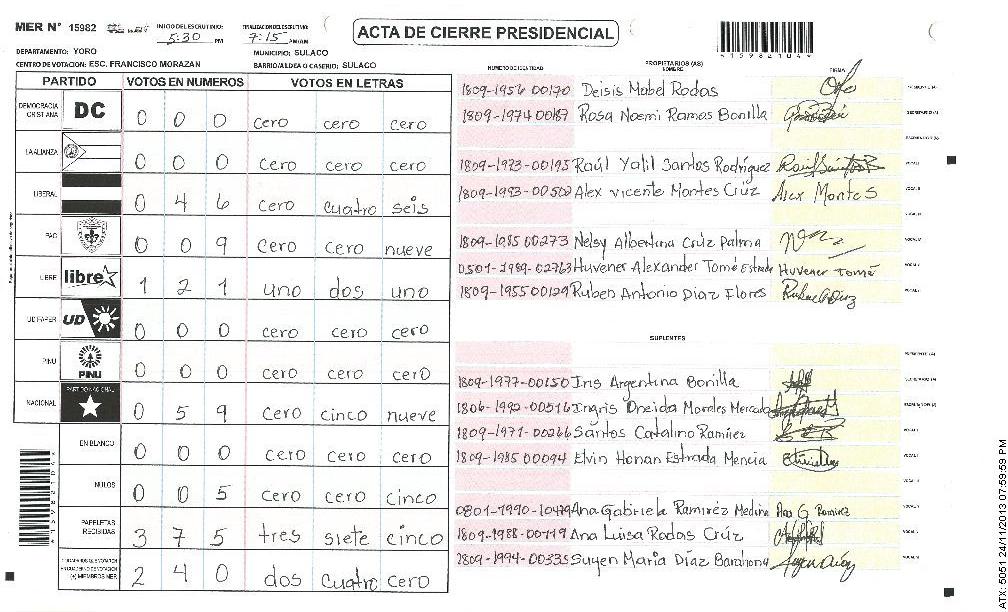 MER N° 15982 INICIO DEL ESCRUTINIO: 5:30 PM FINALIZACION DEL ESCRUTINIO: 7:15 PM/AM
ACTA DE CIERRE PRESIDENCIAL
4159821044
DEPARTAMENTO: YORO MUNICIPIO: SULACO
CENTRO DE VOTACION: ESC. FRANCISCO MORAZAN BARRIO/ALDEA O CASERIO: SULACO
PARTIDO VOTOS EN NUMEROS VOTOS EN LETRAS
DEMOCRACIA CRISTIANA DC 0 0 0 cero cero cero
LA ALIANZA 0 0 0 cero cero cero
LIBERAL 0 4 6 cero cuatro seis
PAC 0 0 9 cero cero nueve
LIBRE libre 1 2 1 uno dos uno
UD FAPER UD 0 0 0 cero cero cero
PINU PINU 0 0 0 cero cero cero
NACIONAL PARTIDO NACIONAL 0 5 9 cero cinco nueve
EN BLANCO 0 0 0 cero cero cero
NULOS 0 0 5 cero cero cinco
PAPELETAS RECIBIDAS 3 7 5 tres siete cinco
(+) MIEMBROS MER 2 4 0 dos cuatro cero
NUMERO DE IDENTIDAD PROPIETARIOS (AS) NOMBRE FIRMA
1809-1956 00170 Deisis Mabel Rodas
1809-1974 00187 Rosa Noemi Ramos Bonilla
1809-1973-00195 Raúl Yalil Santos Rodríguez
1809-1993-00500 Alex Vicente Montes Cruz Alex Montes
1809-1985 00273 Nelsy Albertina Cruz Palma
0501-1989-02763 Huvener Alexander Tomé Estrada Huvener Tomé
1809-1955 00129 Ruben Antonio Diaz Flores
SUPLENTES
1809-1977-00150 Iris Argentina Bonilla
1806-1992-00516 Ingris Oneida Morales Mercado
1809-1971-00266 Santos Catalino Ramírez
1809-1985 00094 Elvin Honan Estrada Mencia
0801-1990-10479 Ana Gabriela Ramirez Medina Ana G Ramirez
1809-1988-00419 Ana Luisa Rodas Crúz
1809-1994-00335 Suyen Maria Díaz Barahona
ATX: 5051 24/11/2013 07:59:59 PM